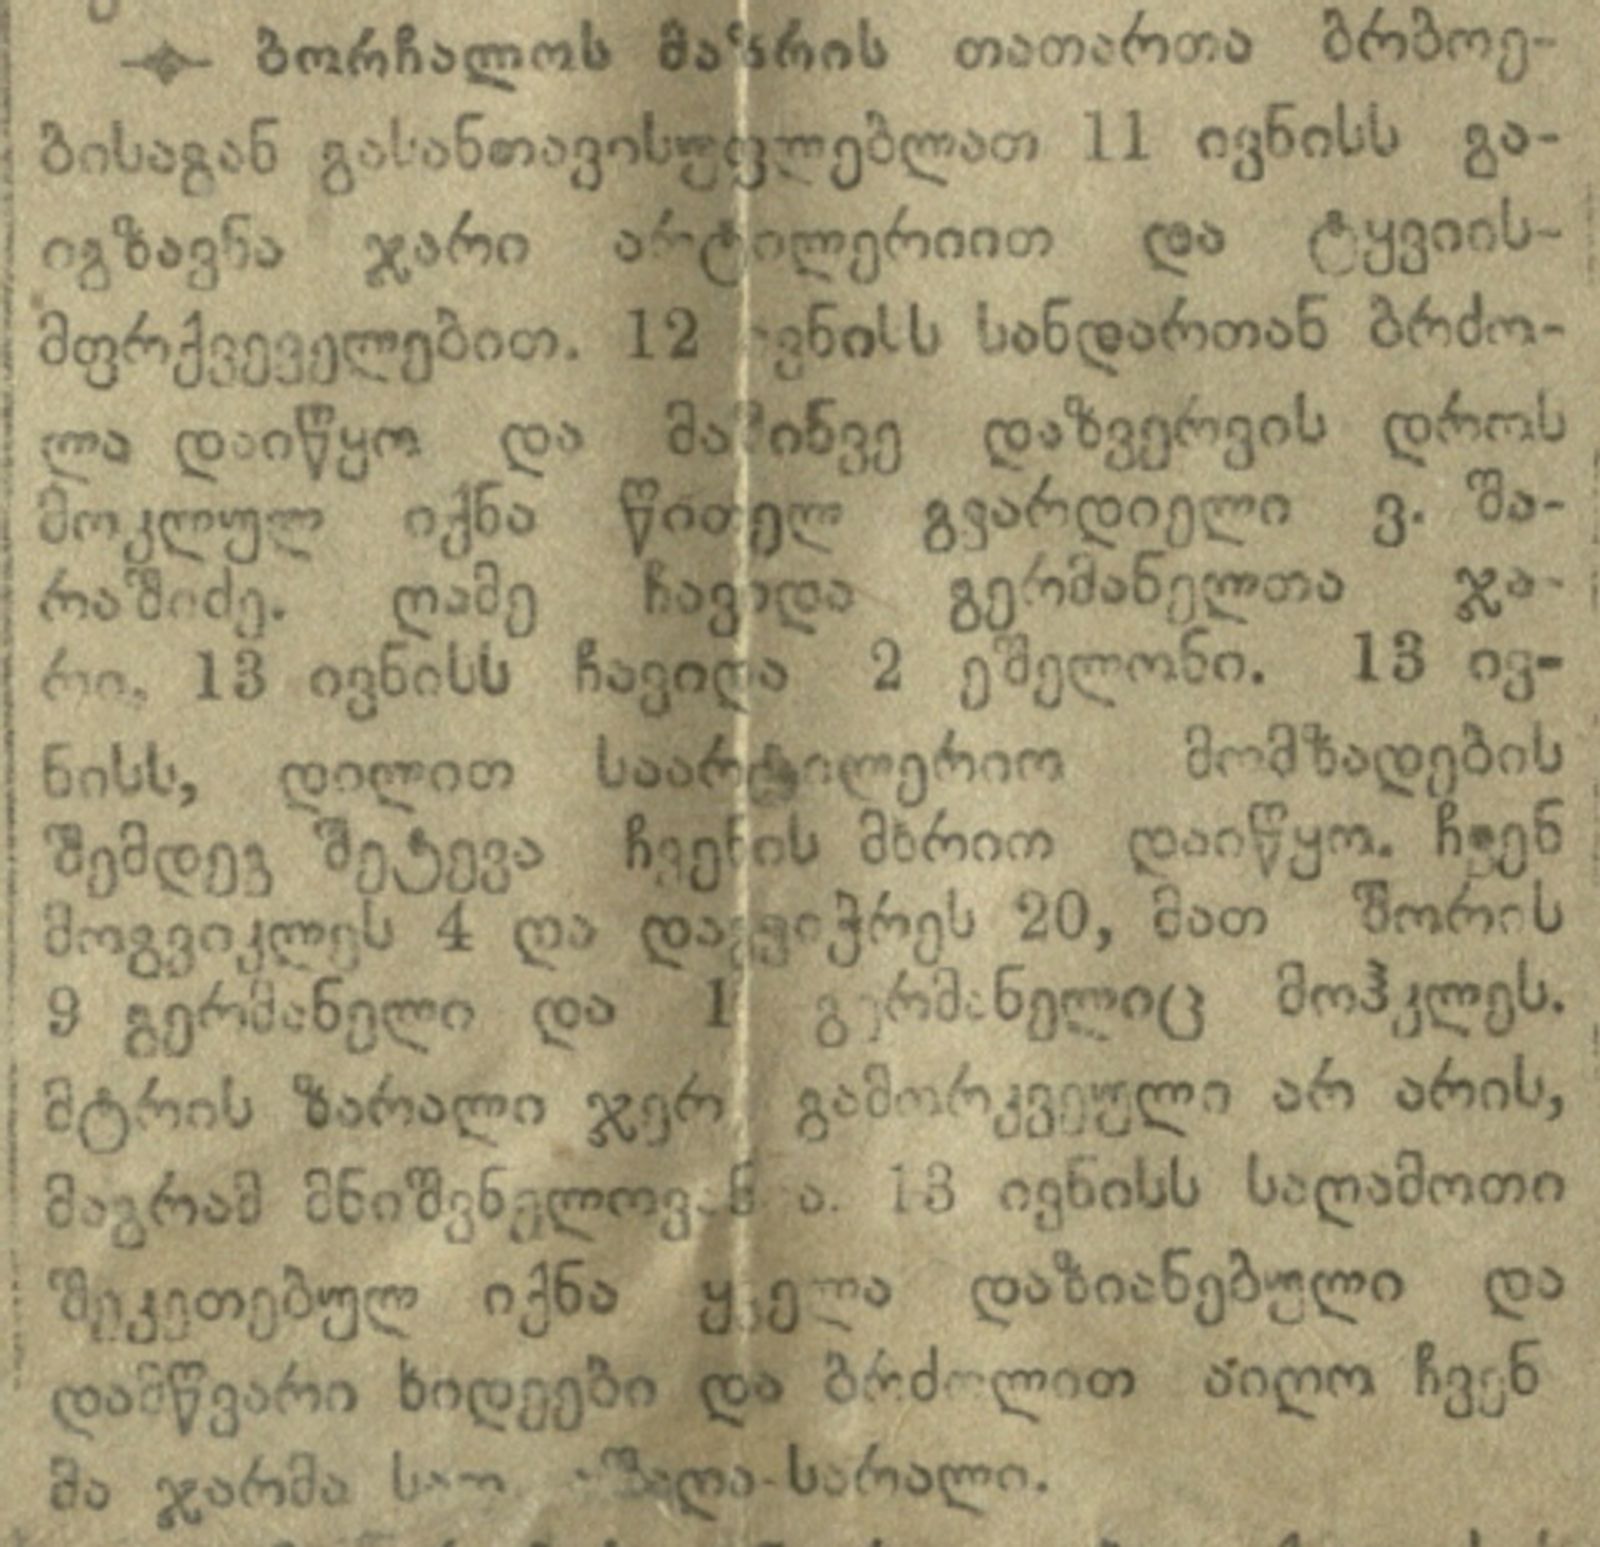 ბორჩალოს მაზრის თათართა ბრბოე-
ბისაგან გასანთავისუფლებლათ 11 ივნისს გა-
იგზავნა ჯარი არტილერიით და ტყვიის-
მფრქვეველებით. 12 ივნისს სანდართან ბრძო-
ლა დაიწყო და მაშინვე დაზვერვის დროს
მოკლულ იქნა წითელ გვარდიელი ვ. შა-
რაშიძე. ღამე ჩავიდა გერმანელთა ჯა-
რი. 13 ივნისს ჩავიდა 2 ეშელონი. 13 ივ-
ნისს, დილით საარტილერიო მომზადების
შემდეგ შეტევა ჩვენის მხრით დაიწყო. ჩვენ
მოგვიკლეს 4 და დაგვიჭრეს 20, მათ შორის
9 გერმანელი და 1 გერმანელიც მოჰკლეს.
მტრის ზარალი ჯერ გამორკვეული არ არის,
მაგრამ მნიშვნელოვანია. 13 ივნისს საღამოთი
შეკეთებულ იქნა ყველა დაზიანებული და
დამწვარი ხიდეები და ბრძოლით აიღო ჩვენ
მა ჯარმა აშაღა-სარალი.